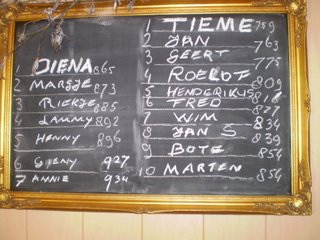 1 DIENA 865
2 MARGJE 873
3 RIEKJE 885
4 LAMMY 892
5 HENNY 896
6 SIENY 927
7 ANNIE 934
1 TIEME 759
2 JAN 763
3 GEERT 775
4 ROELOF
5 HENDERIKUS 809
6 FRED 818
7 WIM 827
8 JAN S 834
9 BOTE 839
10 MARTEN 854
854